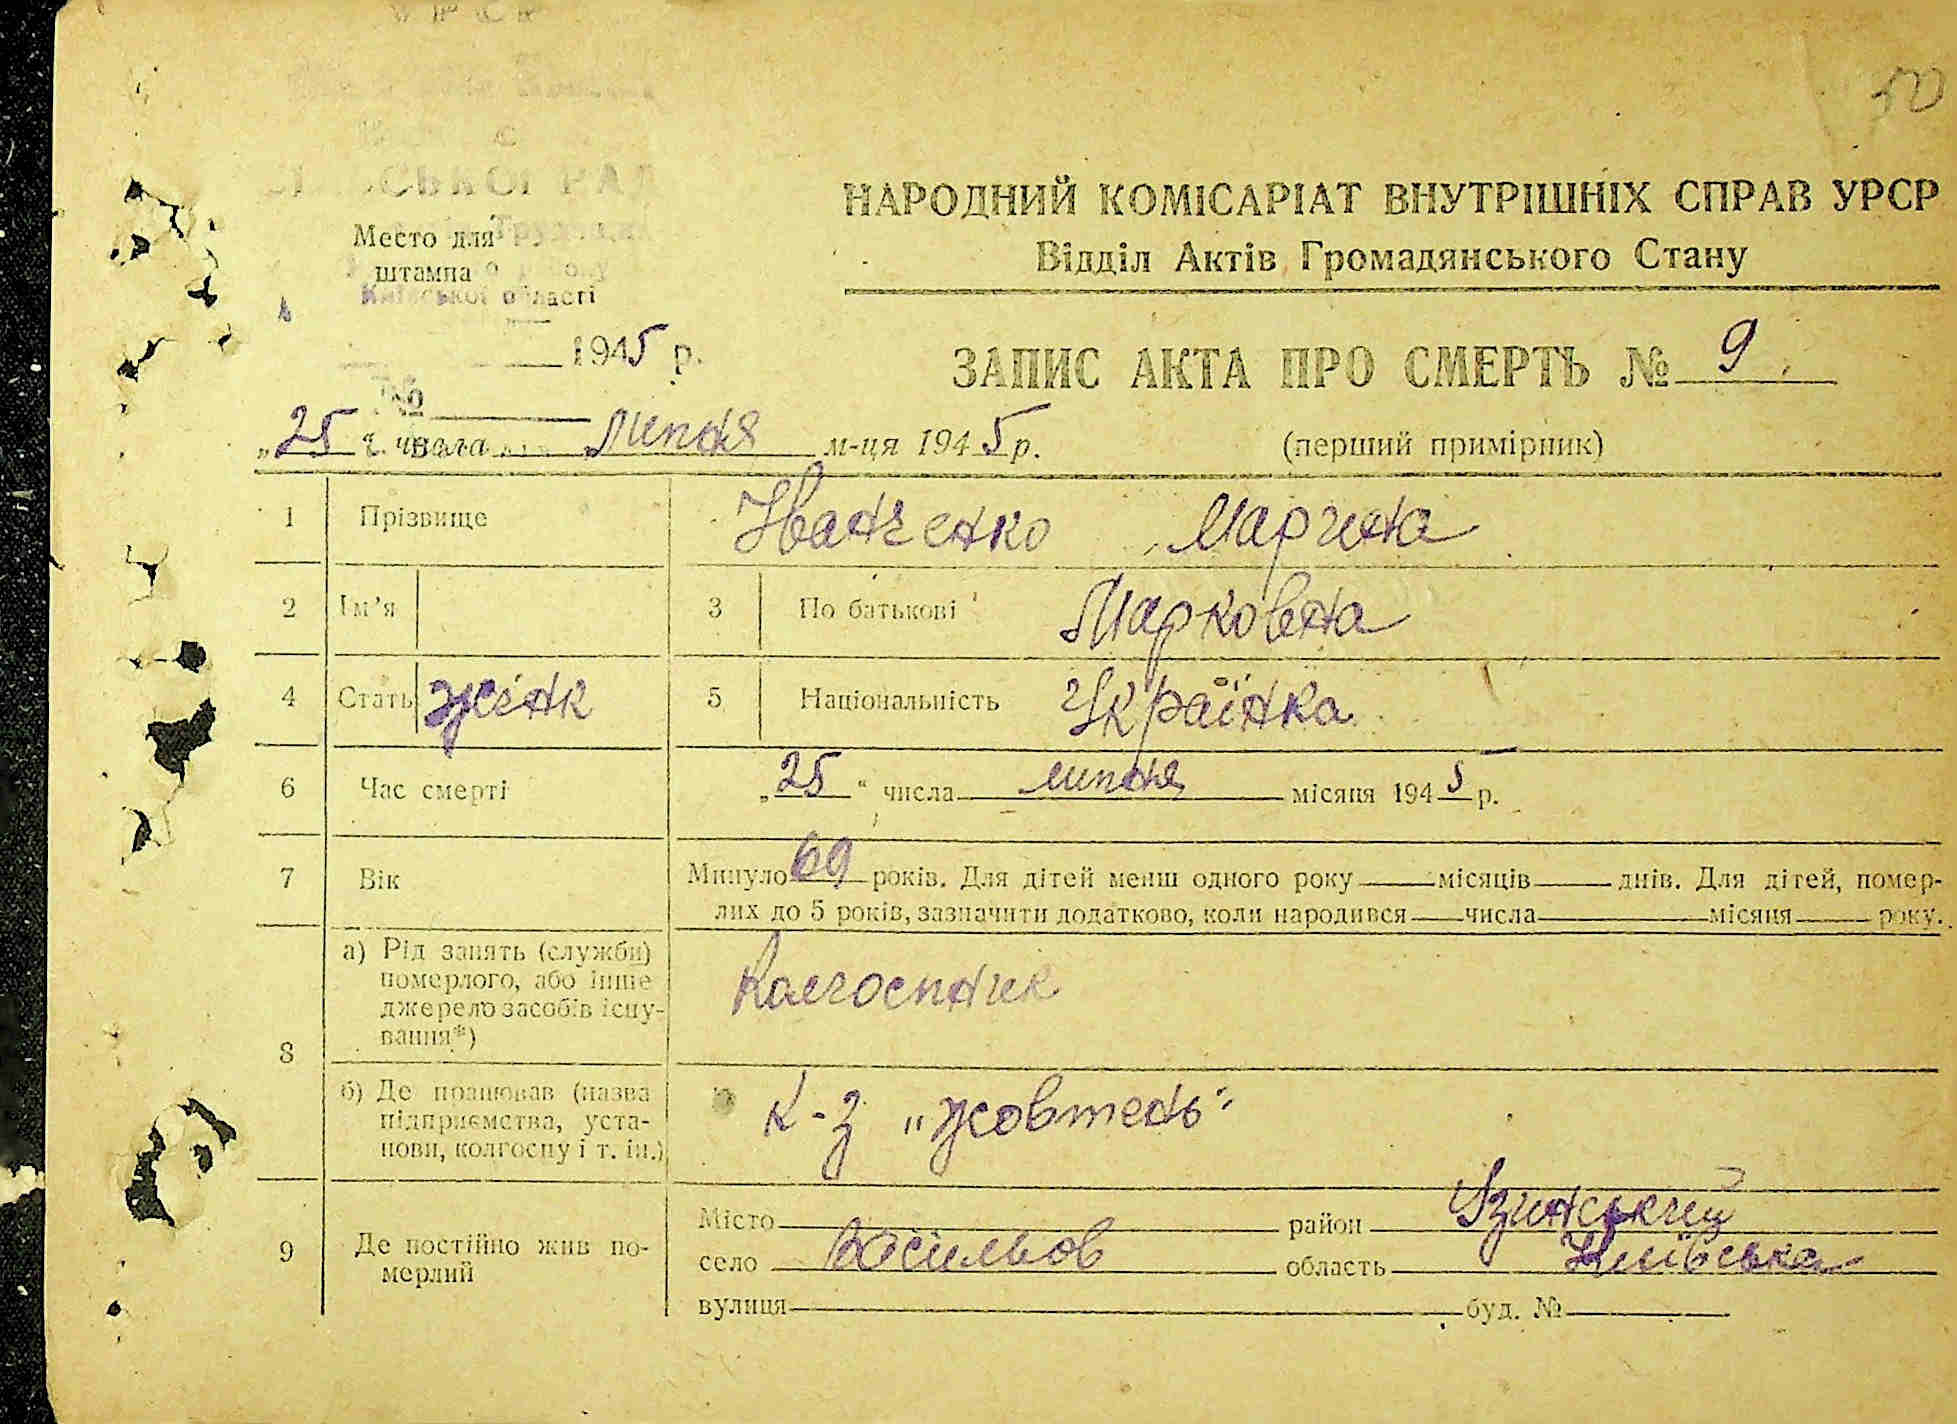 50
НАРОДНИЙ КОМІСАРІАТ ВНУТРІШНІХ СПРАВ УРСР
Відділ Актів Громадянського Стану
Место для
штампа
Київської області
1945 р.
№
ЗАПИС АКТА ПРО СМЕРТЬ № 9
„25“ числа липня м-ця 1945 р.
(перший примірник)
1 Прізвище Іванченко Марина
2 Ім’я 3 По батькові Марковна
4 Стать жінк 5 Національність Українка
6 Час смерті „25“ числа липня місяця 1945 р.
7 Вік Минуло 69 років. Для дітей менш одного року місяців днів. Для дітей, помер-
лих до 5 років, зазначити додатково, коли народився числа місяця року.
8 а) Рід занять (служби)
померлого, або інше
джерело засобів існу-
вання*)
Колгоспник
б) Де працював (назва
підприємства, уста-
нови, колгоспу і т. ін.)
К-з „жовтень“
9 Де постійно жив по-
мерлий
Місто район Узинський
село область Київська
вулиця буд. №